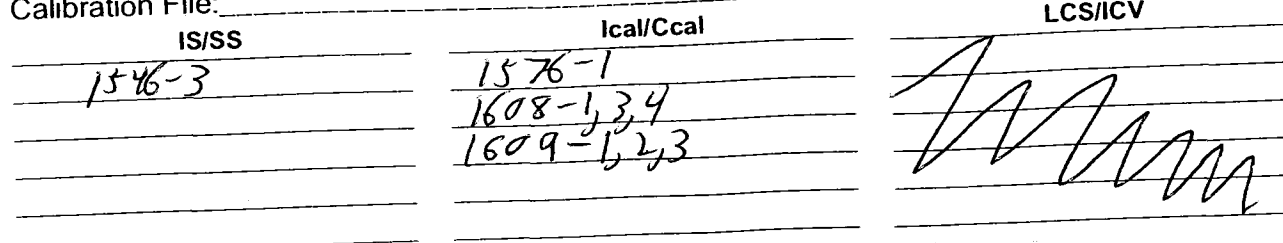 Calibration File:
IS/SS
1546-3
Ical/Ccal
1576-1
1608-1,3,4
1609-1,2,3
LCS/ICV